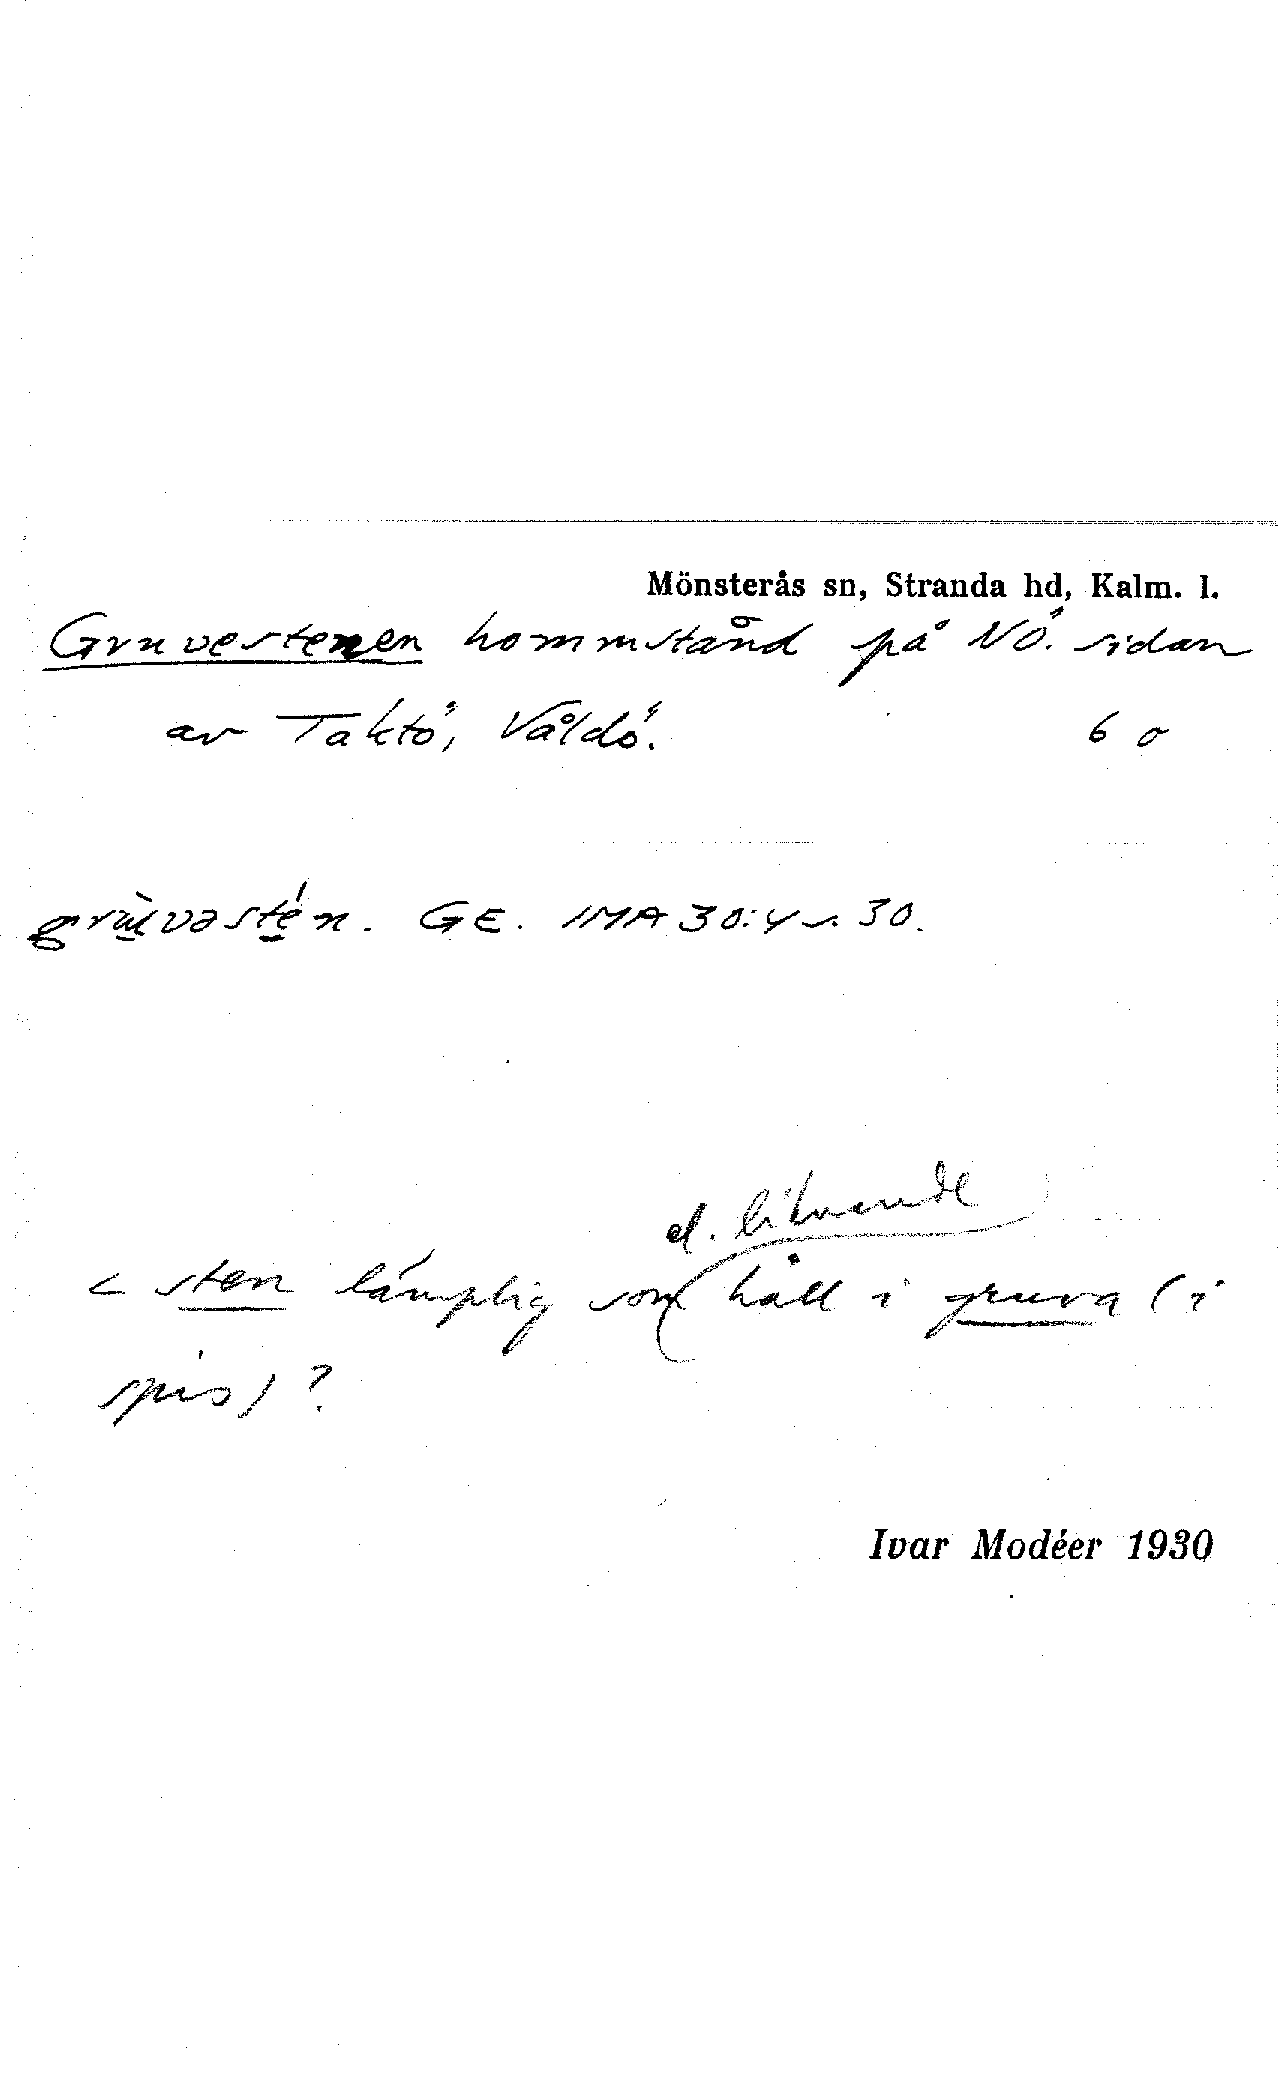 Mönsterås sn, Stranda hd, Kalm. l.
Gruvestenen hommstånd på NÖ. sidan
av Taktö, Våldö. 6 o
grùvəstén. GE. IMA 30:4 s. 30.
el. liknande
< sten lämplig som häll i gruva (i
spis)?
Ivar Modéer 1930